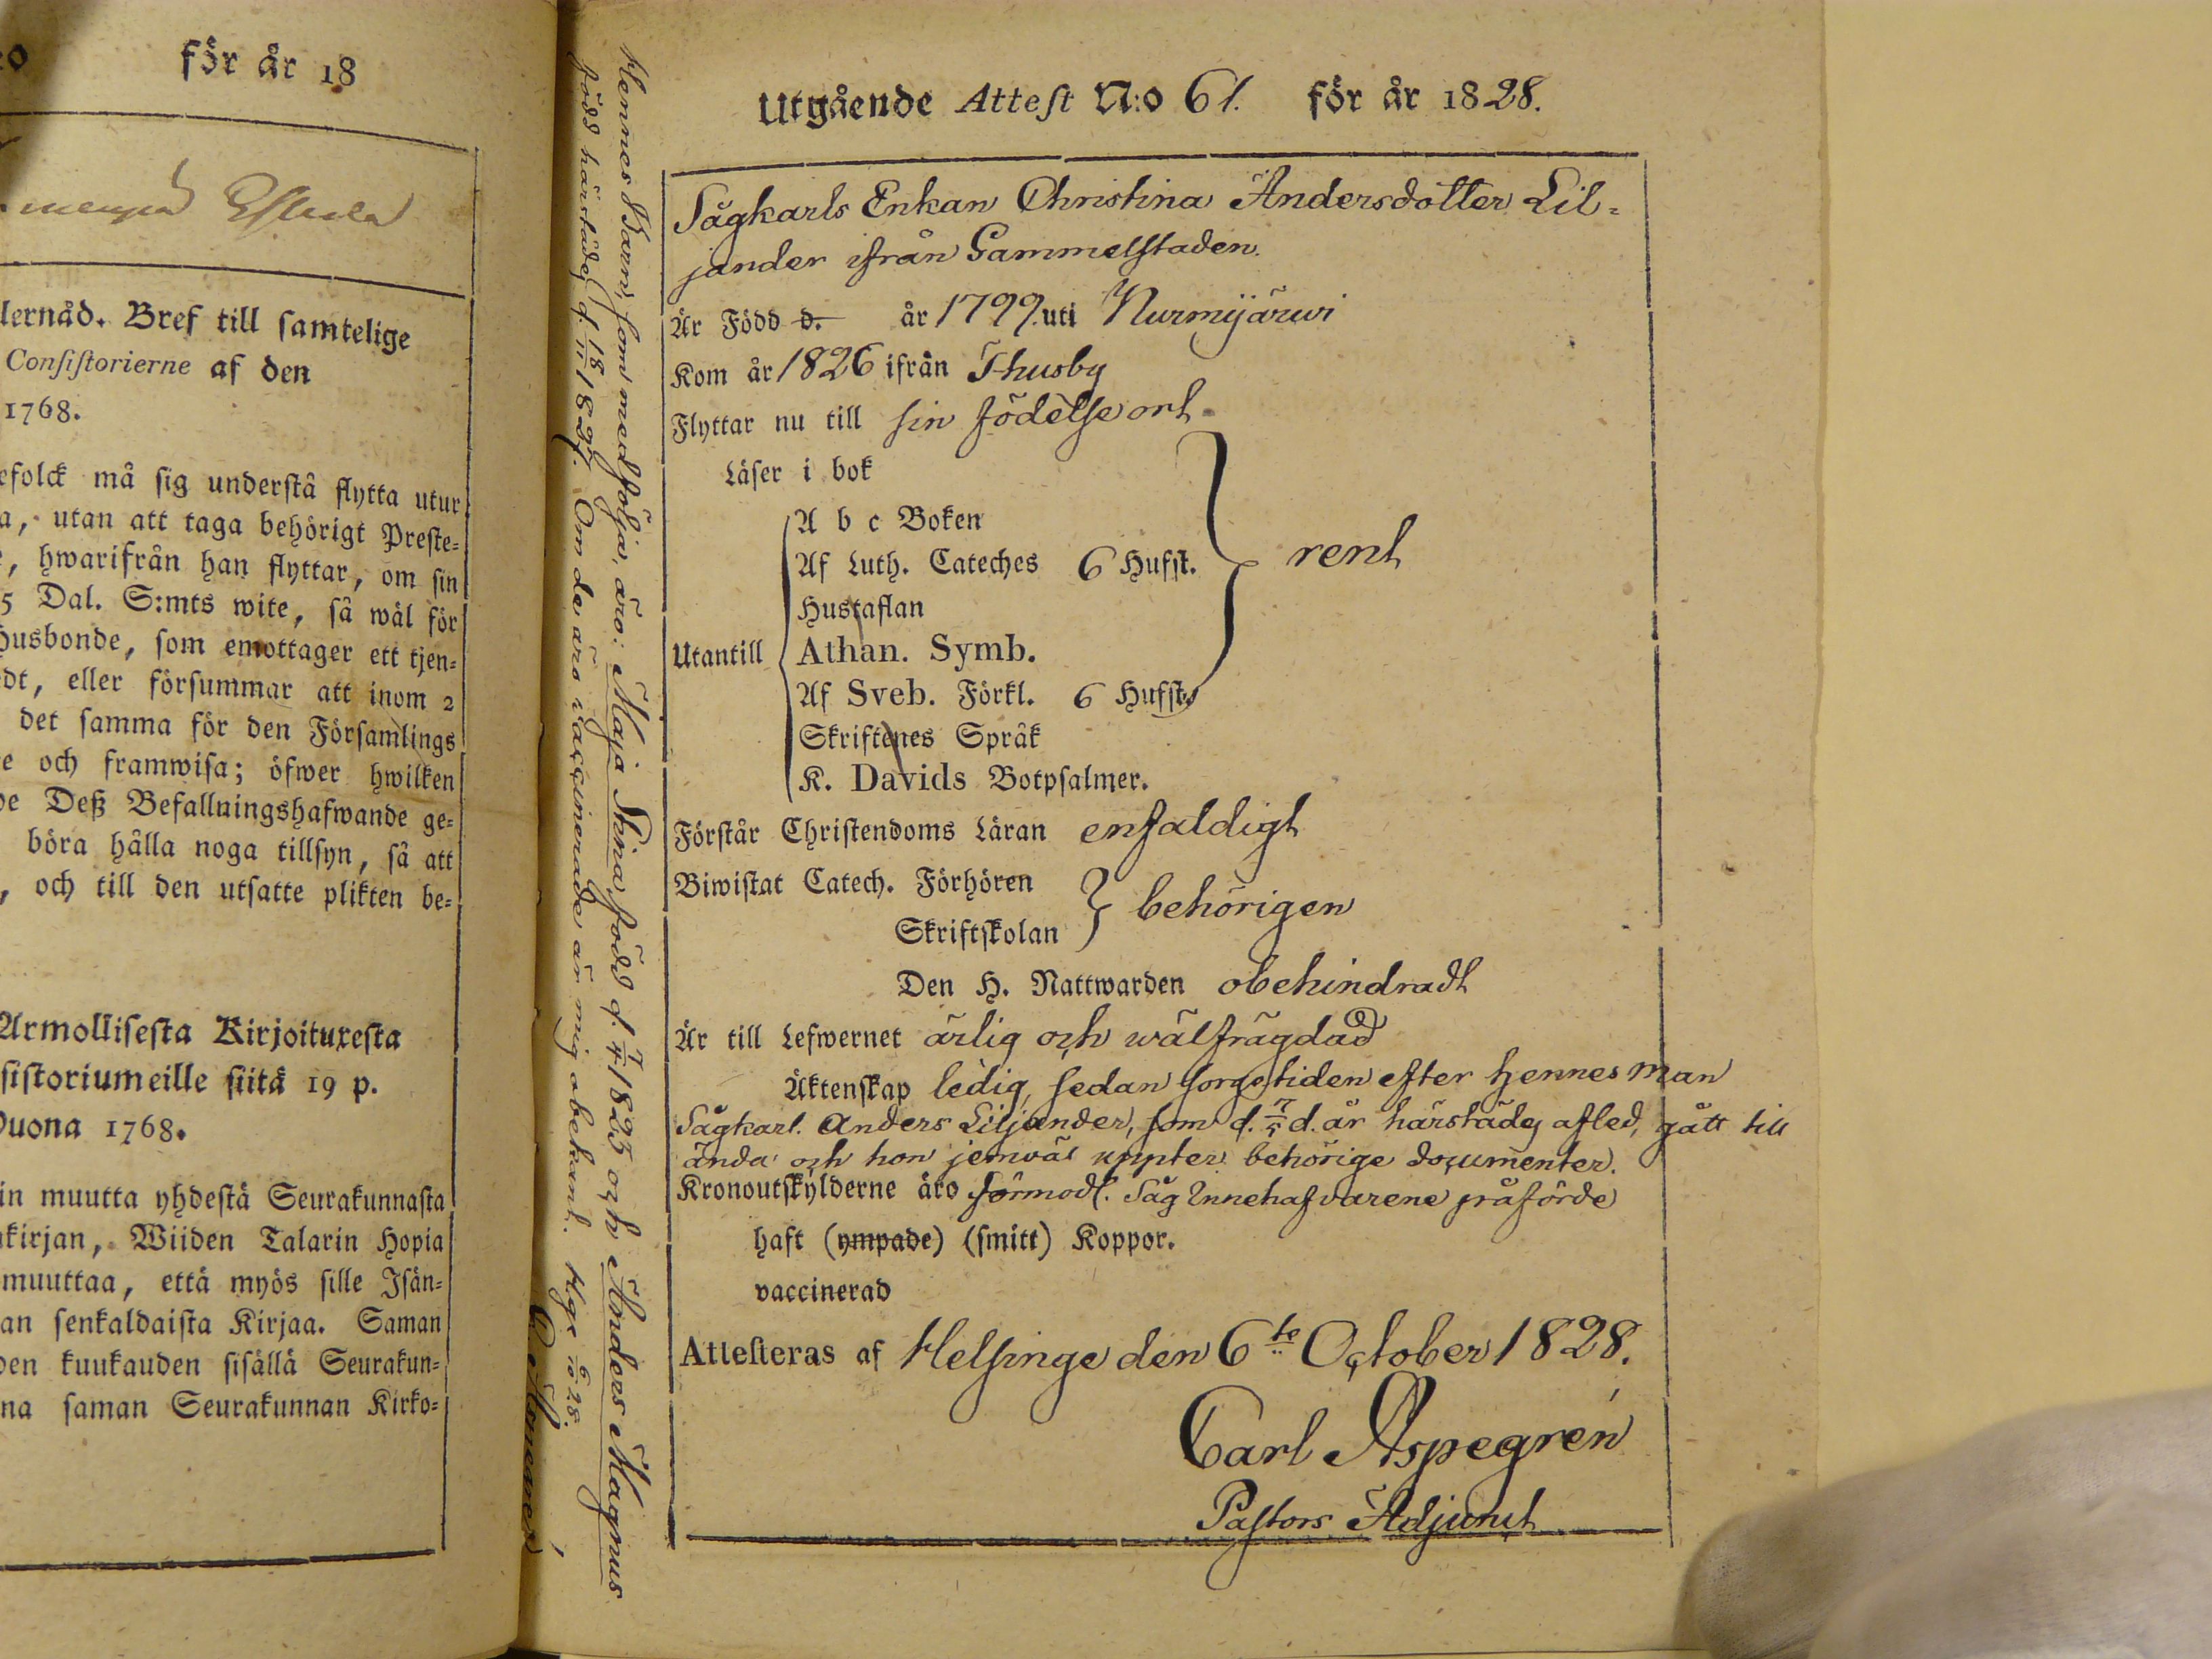 för år 18
lernåd. Bref till samtelige
Consistorierne af den
1768.
efolck må sig understå flytta utur
a, utan att taga behörigt Preste-
, hwarifrån han flyttar, om sin
5 Dal. S:mts wite, så wäl för
husbonde, som emottager ett tjen-
dt, eller försummar att inom 2
det samma för den Församlings
e och framwisa; öfwer hwilken
e Deß Befallningshafwande ge-
böra hålla noga tillsyn, så att
, och till den utsatte plikten be-
Armollisesta Kirjoituxesta
sistoriumeille siitä 19 p.
uona 1768.
in muutta yhdestä Seurakunnasta
kirjan, Wiiden Talarin Hopia
muuttaa, että myös sille Isän-
an senkaldaista Kirjaa. Saman
den kuukauden sisällä Seurakun-
na saman Seurakunnan Kirko-
Hennes Barn, som medfölja, äro: Maja Stina, född d. 7/4 1825 och Anders Magnus
född härstädes d. 18/11 1827. Om de äro vaccinerade är mig obekant. Hge 6/10 28.
Utgående Attest N:o 61. för år 1828.
Sågkarls Enkan Christina Andersdotter Lil-
jander ifrån Gammelstaden.
Är Född d. år 1799. uti Nurmijärwi
Kom år 1826 ifrån Thusby
Flyttar nu till sin födelse ort
Läser i bok
A b c Boken
Af Luth. Cateches 6 Hufst. rent
Hustaflan
Utantill Athan. Symb.
Af Sveb. Förkl. 6 Hufst.
Skriftenes Språk
K. Davids Botpsalmer.
Förstår Christendoms Läran enfaldigt
Biwistat Catech. Förhören
Skriftskolan behörigen
Den H. Nattwarden obehindradt
Är till Lefwernet ärlig och wälfrägdad
Äktenskap ledig, sedan sorgetiden efter hennes man
Sågkarl. Anders Liljander, som d. 7/5 d. år härstädes afled, gått till
ända och hon jemväl uppter behörige documenter.
Kronoutskylderne äro förmodl. Såg Innehafvarene påförde
haft (ympade) (smitt) Koppor.
vaccinerad
Attesteras af Helsinge den 6te October 1828.
Carl Aspegrén
Pastors Adjunct